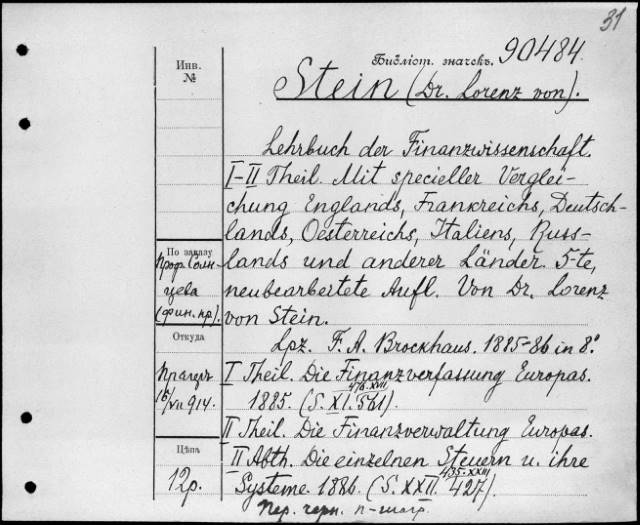 31
Библіот. значекъ. 90484.
Инв. №
Stein (Dr. Lorenz von).
Lehrbuch der Finanzwissenschaft.
I-II Theil. Mit specieller Verglei-
chung Englands, Frankreichs, Deutsch-
lands, Oesterreichs, Italiens, Russ-
lands und anderer Länder. 5-te,
neubearbertete Aufl. Von Dr. Lorenz
von Stein.
Lpz. F. A. Brockhaus. 1885-86 in 8.°
I Theil. Die Finanzverfassung Europas.
1885. (S. XI. 561).
476. XVII
II Theil. Die Finanzverwaltung Europas.
II Abth. Die einzelnen Steuern u. ihre
Systeme 1886. (S. XXII. 427).
435. XXIII
Пер. черн. п-шагр.
По заказу
Проф. Солн-
цева
(фин. пр).
Откуда
Прагеръ
16/VII 914.
Цѣна
12р.